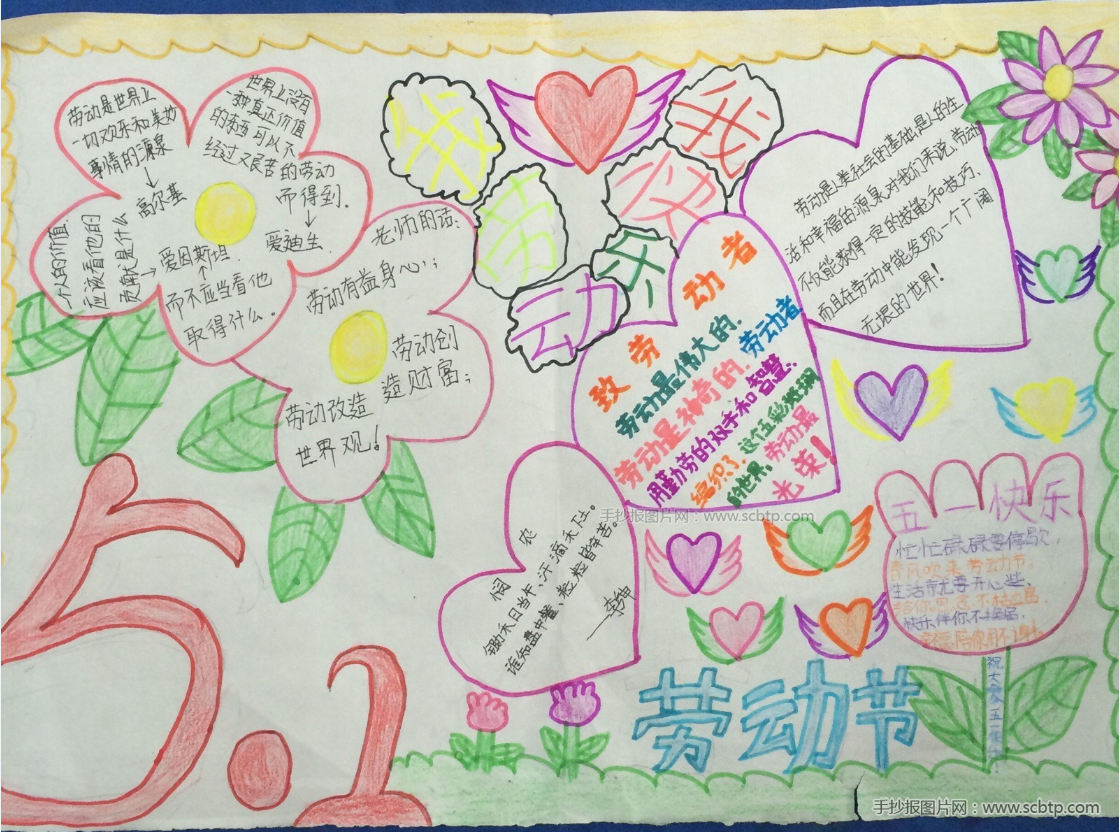 劳动是世界上
一切欢乐和美妙
事情的源泉
高尔基
世界上没有
一种真正价值
的东西,可以不
经过艰苦的劳动
而得到.
爱迪生
个人的价值.
应该看他的
贡献是什么
爱因斯坦.
而不应当看他
取得什么。
老师的话:
劳动有益身心;
劳动创
造财富;
劳动改造
世界观!
我
劳
动
我
快
乐
致劳动者
劳动最伟大的.
劳动是神奇的.劳动者
用勤劳的双手和智慧.
编织了这个五彩斑斓
的世界.劳动最
光荣!
劳动是人类社会的基础.是人的生
活和幸福的源泉.对我们来说.劳动
不仅能获得一定的技能和技巧.
而且在劳动中能发现一个广阔
无垠的世界!
悯农
锄禾日当午、汗滴禾下土。
谁知盘中餐、粒粒皆辛苦。
——李绅
手抄报图片网:www.scbtp.com。
五一快乐
忙忙碌碌要停歇,
春风吹来劳动节.
生活就要开心些.
快乐伴你不停歇.
祝大家五一快乐
5.1
劳动节
手抄报图片网:www.scbtp.com